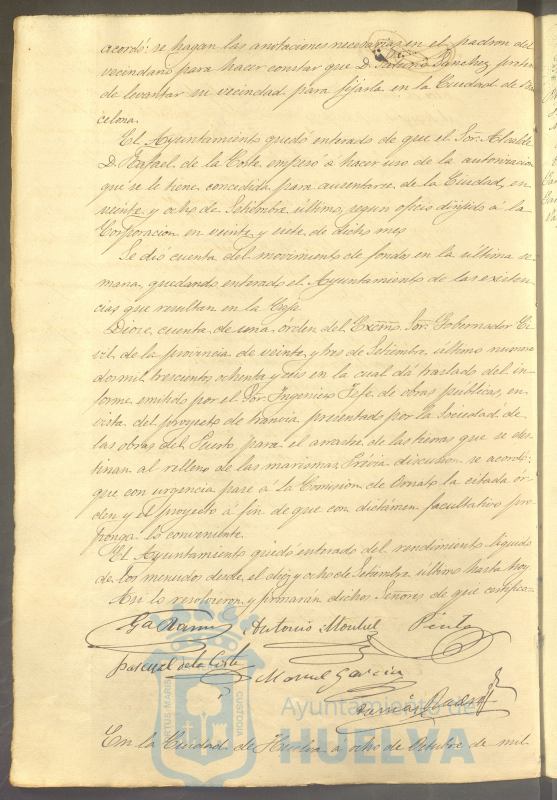 acordó: se hagan las anotaciones necesarias en el padron del
vecindario para hacer constar que D. Sanchez
de levantar su vecindad para fijarla en la Ciudad de Bar
celona.
El Ayuntamiento quedó enterado de que el Sor. Alcalde
D. Rafael de la Corte empezó á hacer uso de la autorizacion
que se le tiene concedida para ausentarse de la Ciudad, en
veinte y ocho de Setiembre último, segun oficio dirijido á la
Corporacion en veinte y siete de dicho mes
Se dió cuenta del movimiento de fondos en la última se
mana, quedando enterado el Ayuntamiento de las existen
cias que resultan en la Caja.
Diose cuenta de una órden del Excmo. Sor. Gobernador Ci
vil de la provincia de veinte y tres de Setiembre último numero
dos mil trescientos ochenta y seis en la cual dá traslado del in
forme emitido por el Sor. Ingeniero Jefe de obras públicas, en
vista del proyecto de tranvia presentado por la Sociedad de
las obras del Puerto para el arrastre de las tierras que se des
tinan al relleno de las marismas. Prévia discusion se acordó:
que con urgencia pase á la Comision de Ornato la citada ór
den y el proyecto á fin de que con dictámen facultativo pro
ponga lo conveniente.
El Ayuntamiento quedó enterado del rendimiento líquido
de los menudos desde el diez y ocho de Setiembre último hasta hoy.
Asi lo resolvieron y firmarán dichos Señores de que certifico.
Antonio Montiel
Pascual de la Corte
Manuel Garcia
Ayuntamiento de
HUELVA
En la Ciudad de Huelva á ocho de Octubre de mil